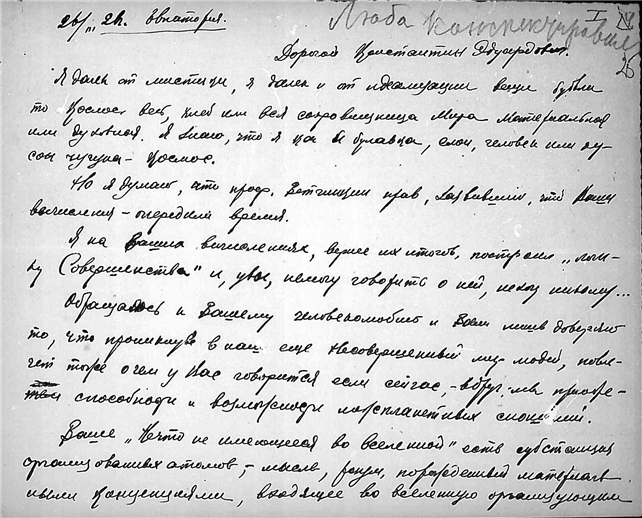 26/II 24. Евпатория.
Люба Конспектировала
I
25
Дорогой Константин Эдуардович.
Я далек от мистики, я далек и от идеализации вещи будь
то Космос весь, хлеб или вся сокровищница Мира материальная
или духовная. Я знаю, что я как и булавка, слон, человек или ку-
сок чугуна – Космос.
Но я думаю, что проф. Ветчинкин прав, заявивший, что Ваши
вычисления – опередили время.
Я на Ваших вычислениях, вернее их итогов, построил „логи-
ку Совершенства" и, увы, не могу говорить о ней, некому...
Обращаюсь к Вашему человеколюбию и Вам лишь доверяю
то, что проникнув в наш еще Несовершенный мир людей, повле-
чет то же о чем у Вас говорится если сейчас, – вдруг, мы приобре-
способности и возможности межпланетных сношений.
Ваше „Нечто не имеющееся во вселенной" есть субстанция
организованных атомов, – мысль, разум, порожденный материаль-
ными концепциями, входящее во вселенную организующим